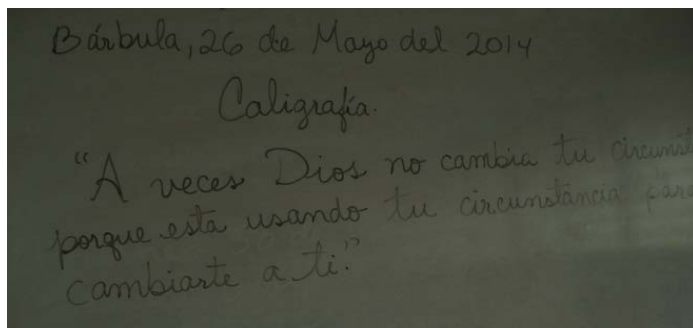 Bárbula, 26 de Mayo del 2014
Caligrafía.
"A veces Dios no cambia tu circunst
porque esta usando tu circunstancia para
cambiarte a ti."